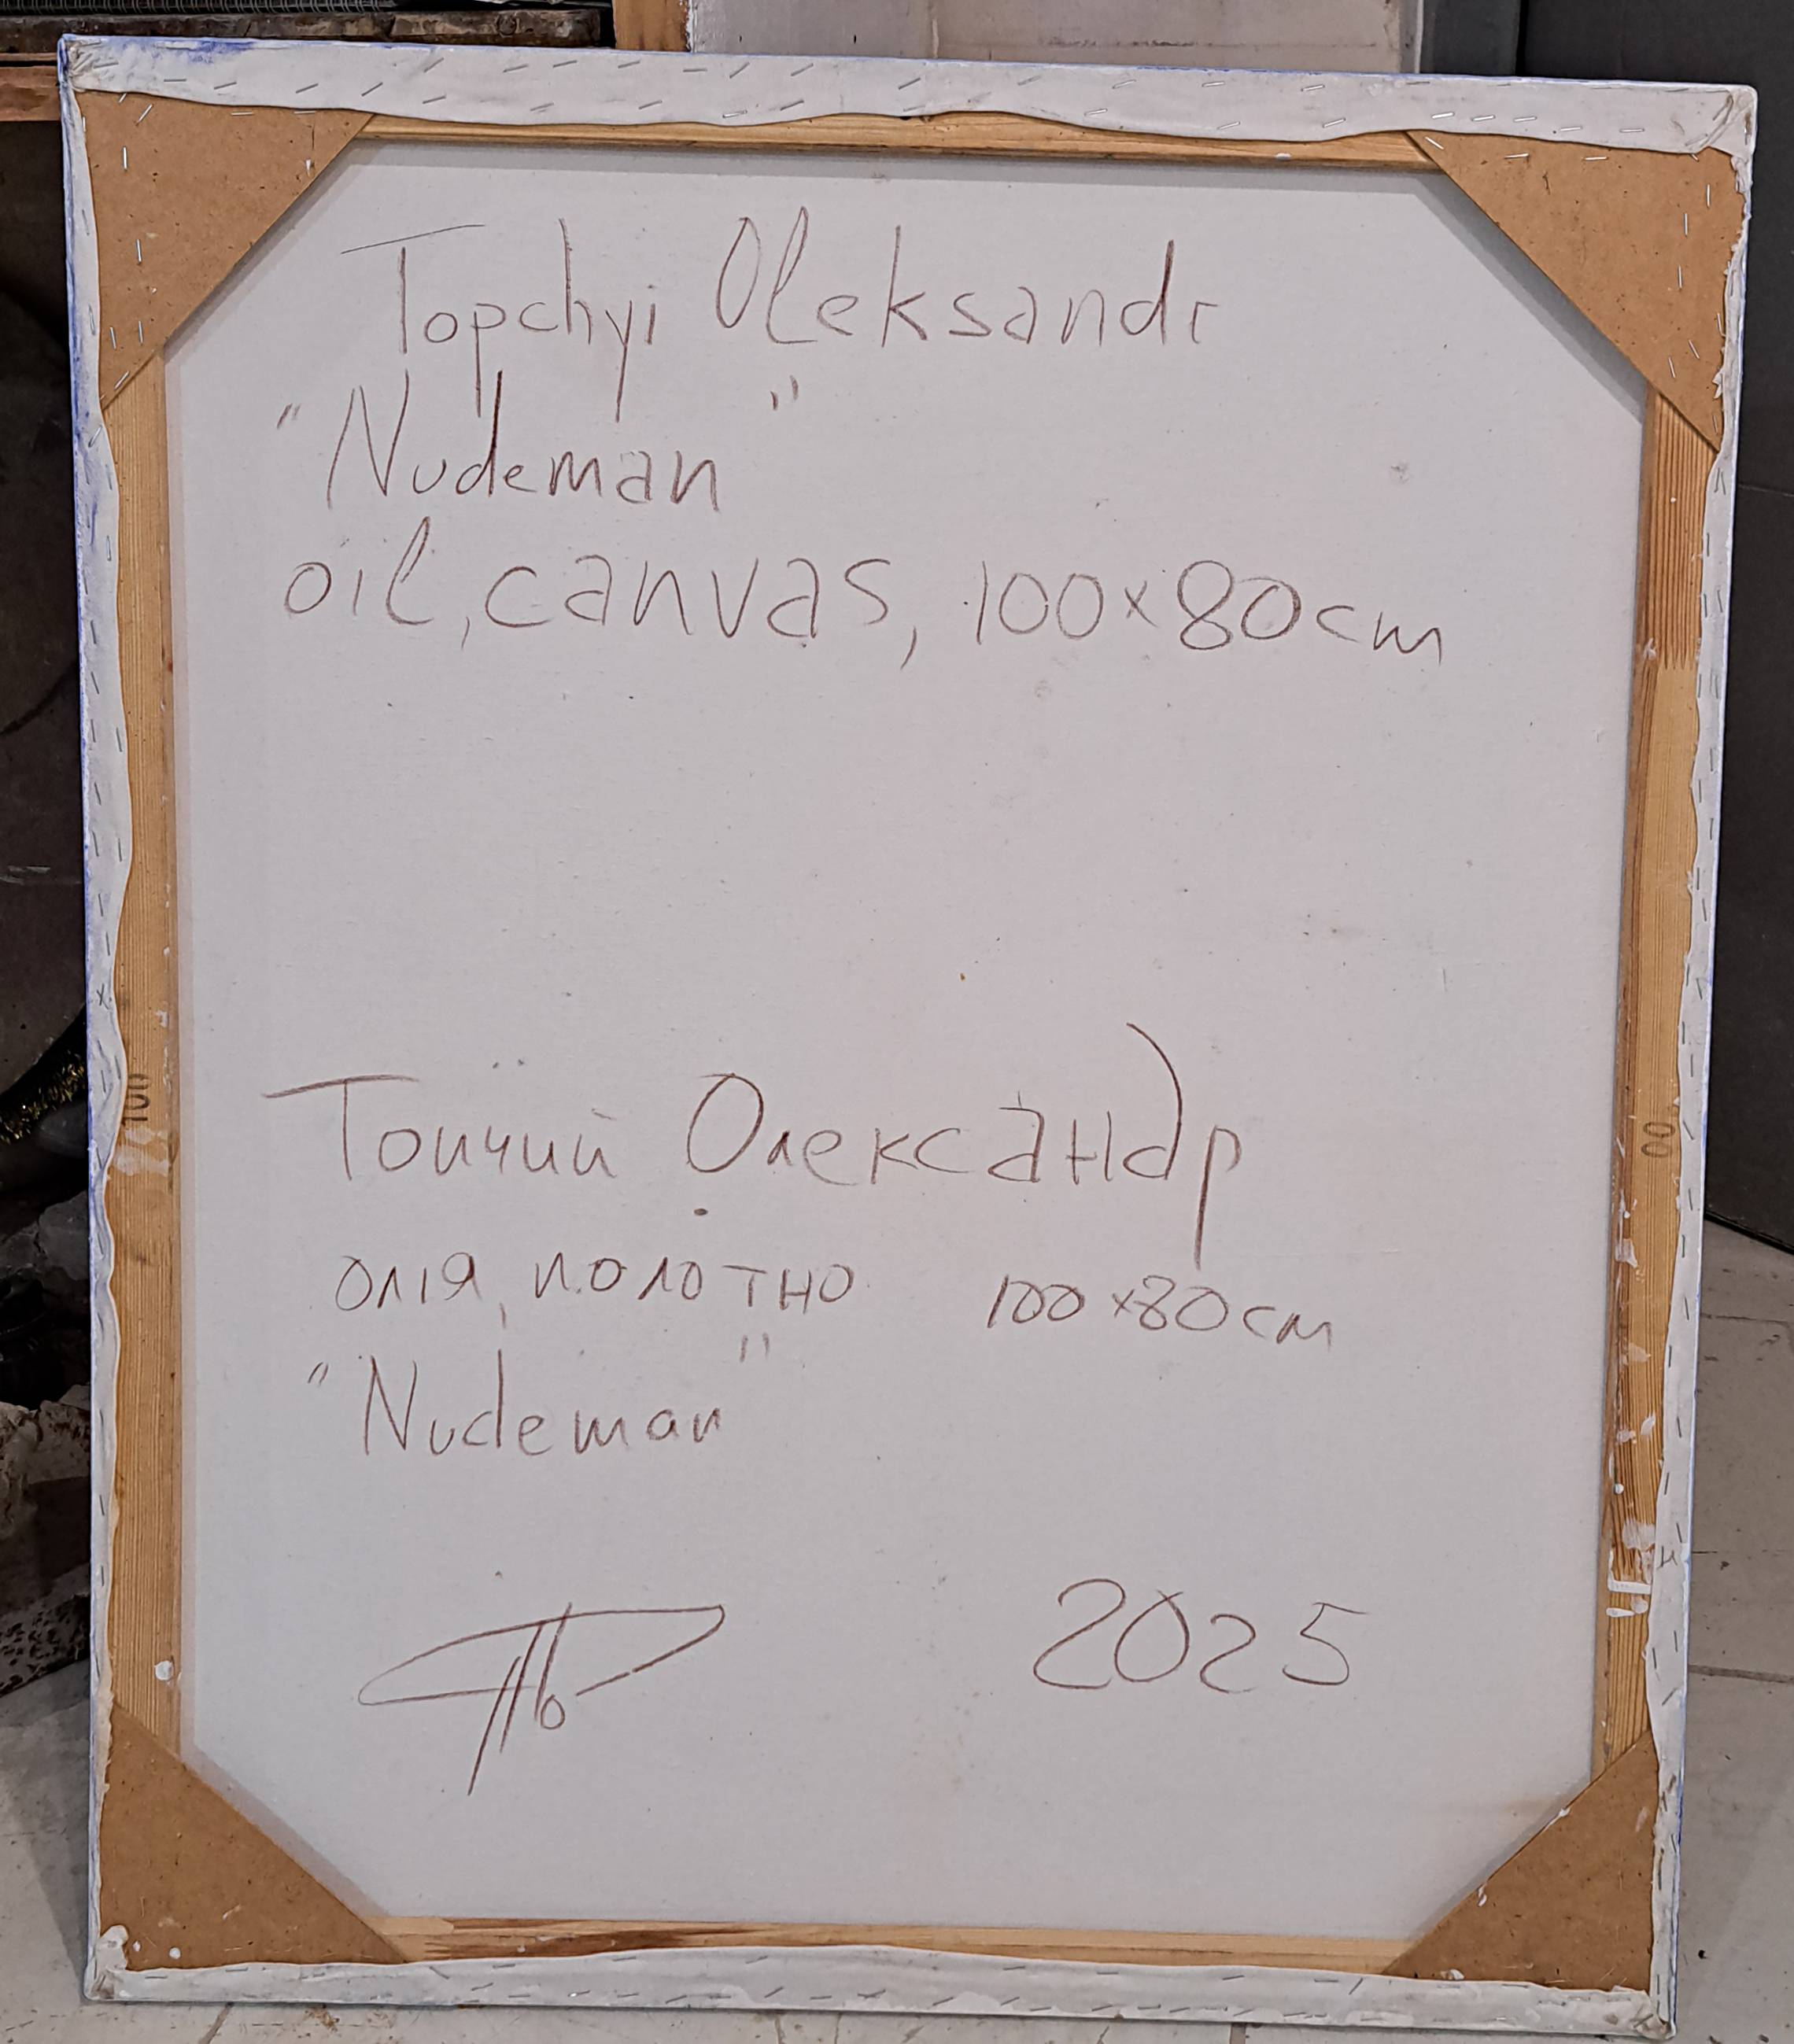 Topchyi Oleksandr
"Nudeman"
oil, canvas, 100x80cm
Топчий Олександр
олія, полотно 100x80см
"Nudeman"
2025
100